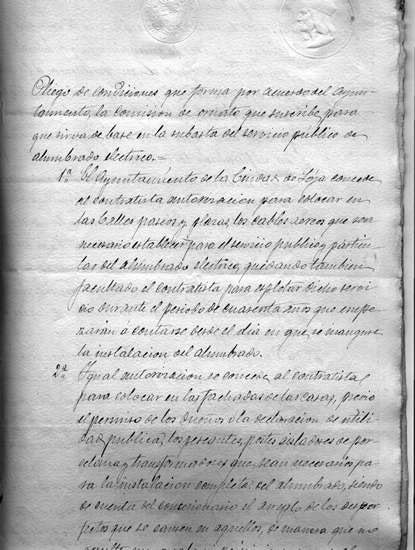 Pliego de condiciones que forma por acuerdo del Ayun-
tamiento, la Comision de ornato que suscribe, para
que sirva de base en la subasta del servicio público de
alumbrado electrico.=
1ª El Ayuntamiento de la Ciudad de Loja concede
al contratista autorizacion para colocar en
las calles, paseos y plazas, los cables aereos que sea
necesario establecer para el servicio publico y particu-
lar del alumbrado electrico, quedando tambien
facultado el contratista para explotar dicho servi-
cio durante el periodo de cuarenta años que empe-
zarán a contarse desde el dia en que se inaugure
la instalacion del alumbrado.
2ª Igual autorizacion se concede al contratista
para colocar en las fachadas de las casas, previo
el permiso de los dueños o la declaracion de utili-
dad publica, los pescantes, postes aisladores de por-
celana y transformadores que sean necesarios pa-
ra la instalacion completa del alumbrado, siendo
de cuenta del concesionario el arreglo de los desper-
fectos que se causen en aquellos, de manera que no